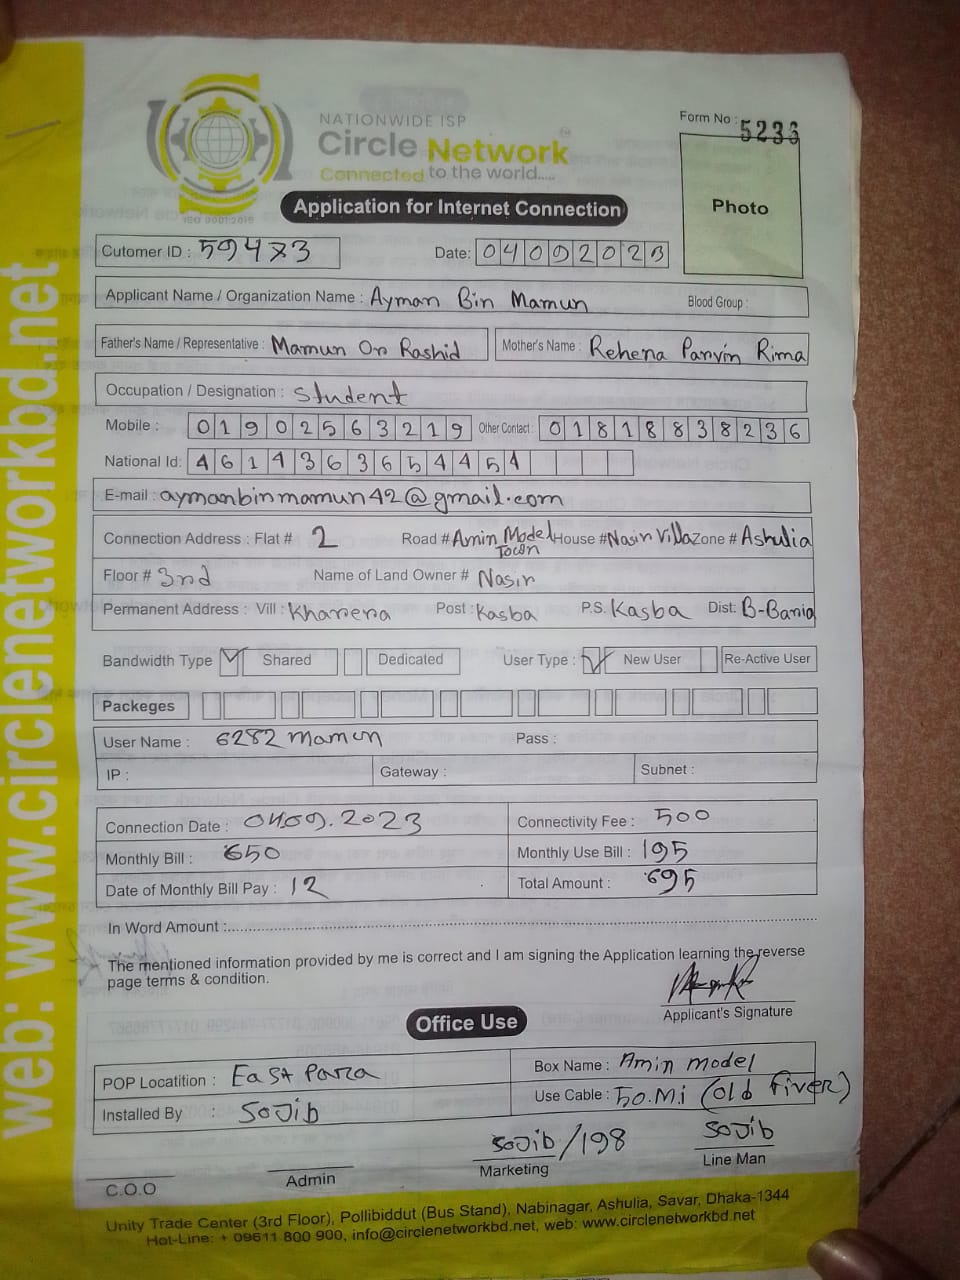 web: www.circlenetworkbd.net
NATIONWIDE ISP
Circle Network
Connected to the world.....
ISO 9001:2015
Form No : 5233
Photo
Application for Internet Connection
Cutomer ID : 59473
Date: 04092023
Applicant Name / Organization Name : Ayman Bin Mamun Blood Group :
Father's Name / Representative : Mamun Or Rashid Mother's Name : Rehena Parvin Rima
Occupation / Designation : Student
Mobile : 01902563219 Other Contact : 01818838236
National Id: 4614363654454
E-mail : aymanbinmamun42@gmail.com
Connection Address : Flat # 2 Road # Amin Model Town House # Nasir Villa Zone # Ashulia
Floor # 3rd Name of Land Owner # Nasir
Permanent Address : Vill : Post : Kasba P.S. Kasba Dist: B-Baria
Bandwidth Type Shared Dedicated User Type : New User Re-Active User
Packeges
User Name : 6282 mamun Pass :
IP : Gateway : Subnet :
Connection Date : 04.09.2023 Connectivity Fee : 500
Monthly Bill : 650 Monthly Use Bill : 195
Date of Monthly Bill Pay : 12 Total Amount : 695
In Word Amount :
The mentioned information provided by me is correct and I am signing the Application learning the reverse
page terms & condition.
Applicant's Signature
Office Use
POP Locatition : East Para Box Name : Amin model
Installed By : Sojib Use Cable : 50.Mi (old fiver)
C.O.O Admin Sojib/198 Marketing Sojib Line Man
Unity Trade Center (3rd Floor), Pollibiddut (Bus Stand), Nabinagar, Ashulia, Savar, Dhaka-1344
Hot-Line: + 09611 800 900, info@circlenetworkbd.net, web: www.circlenetworkbd.net